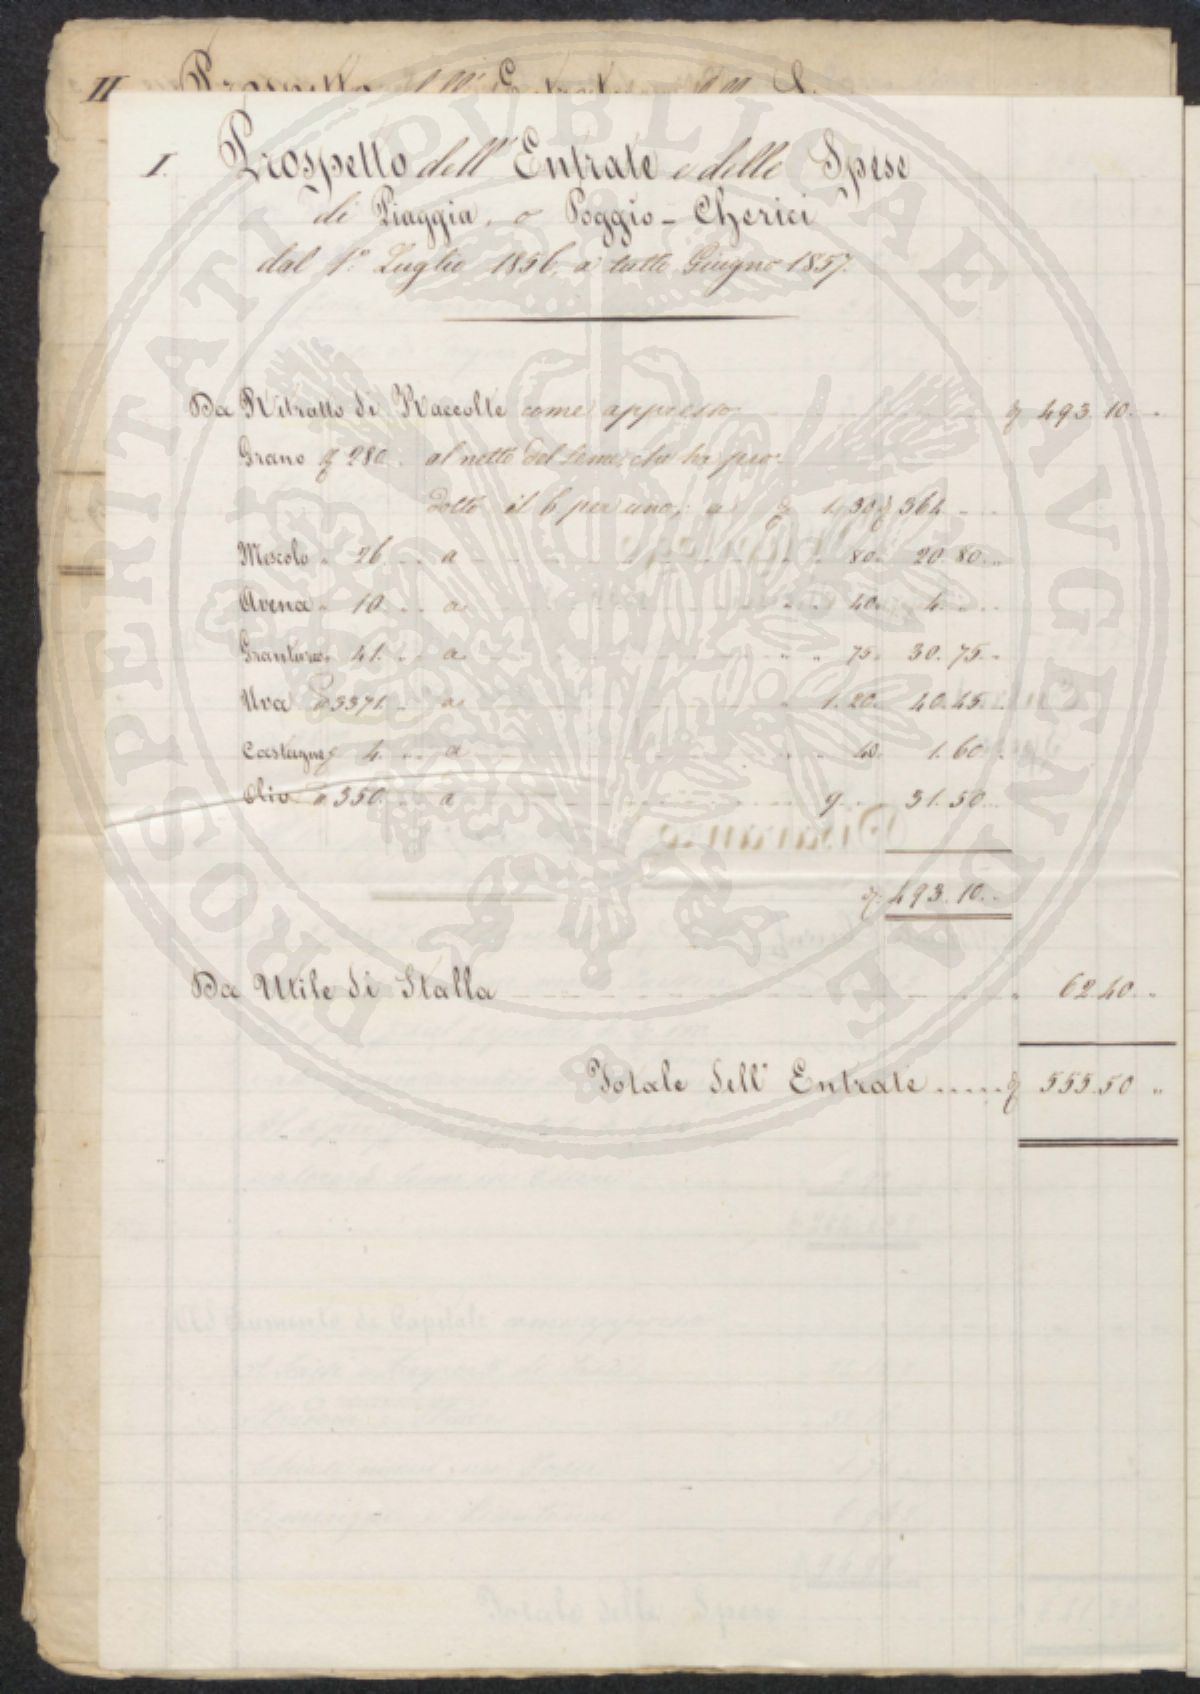 II Prospetto dell' Entrate
I. Prospetto dell' Entrate e delle Spese
di Piaggia, o Poggio-Cherici
dal 1.º Luglio 1856, a tutto Giugno 1857.
Da Ritratto di Raccolte come appresso 493.10.
Grano 280. al netto del seme, che ha pro-
dotto il 6 per uno, a 1.30 364
Mescolo " 26. a " " 80. 20.80.
Avena " 10. a " " 40. 4.
Granturco 41. a " " 75. 30.75.
Uva 3371. a " 1.20. 40.45.
Castagne 4. a " " 40. 1.60.
Olio " 350. a 9. 31.50.
493.10.
Da Utile di Stalla " 62.40. "
Totale dell' Entrate 555.50 "
PROSPERITATI PUBLICAE AVGENDAE